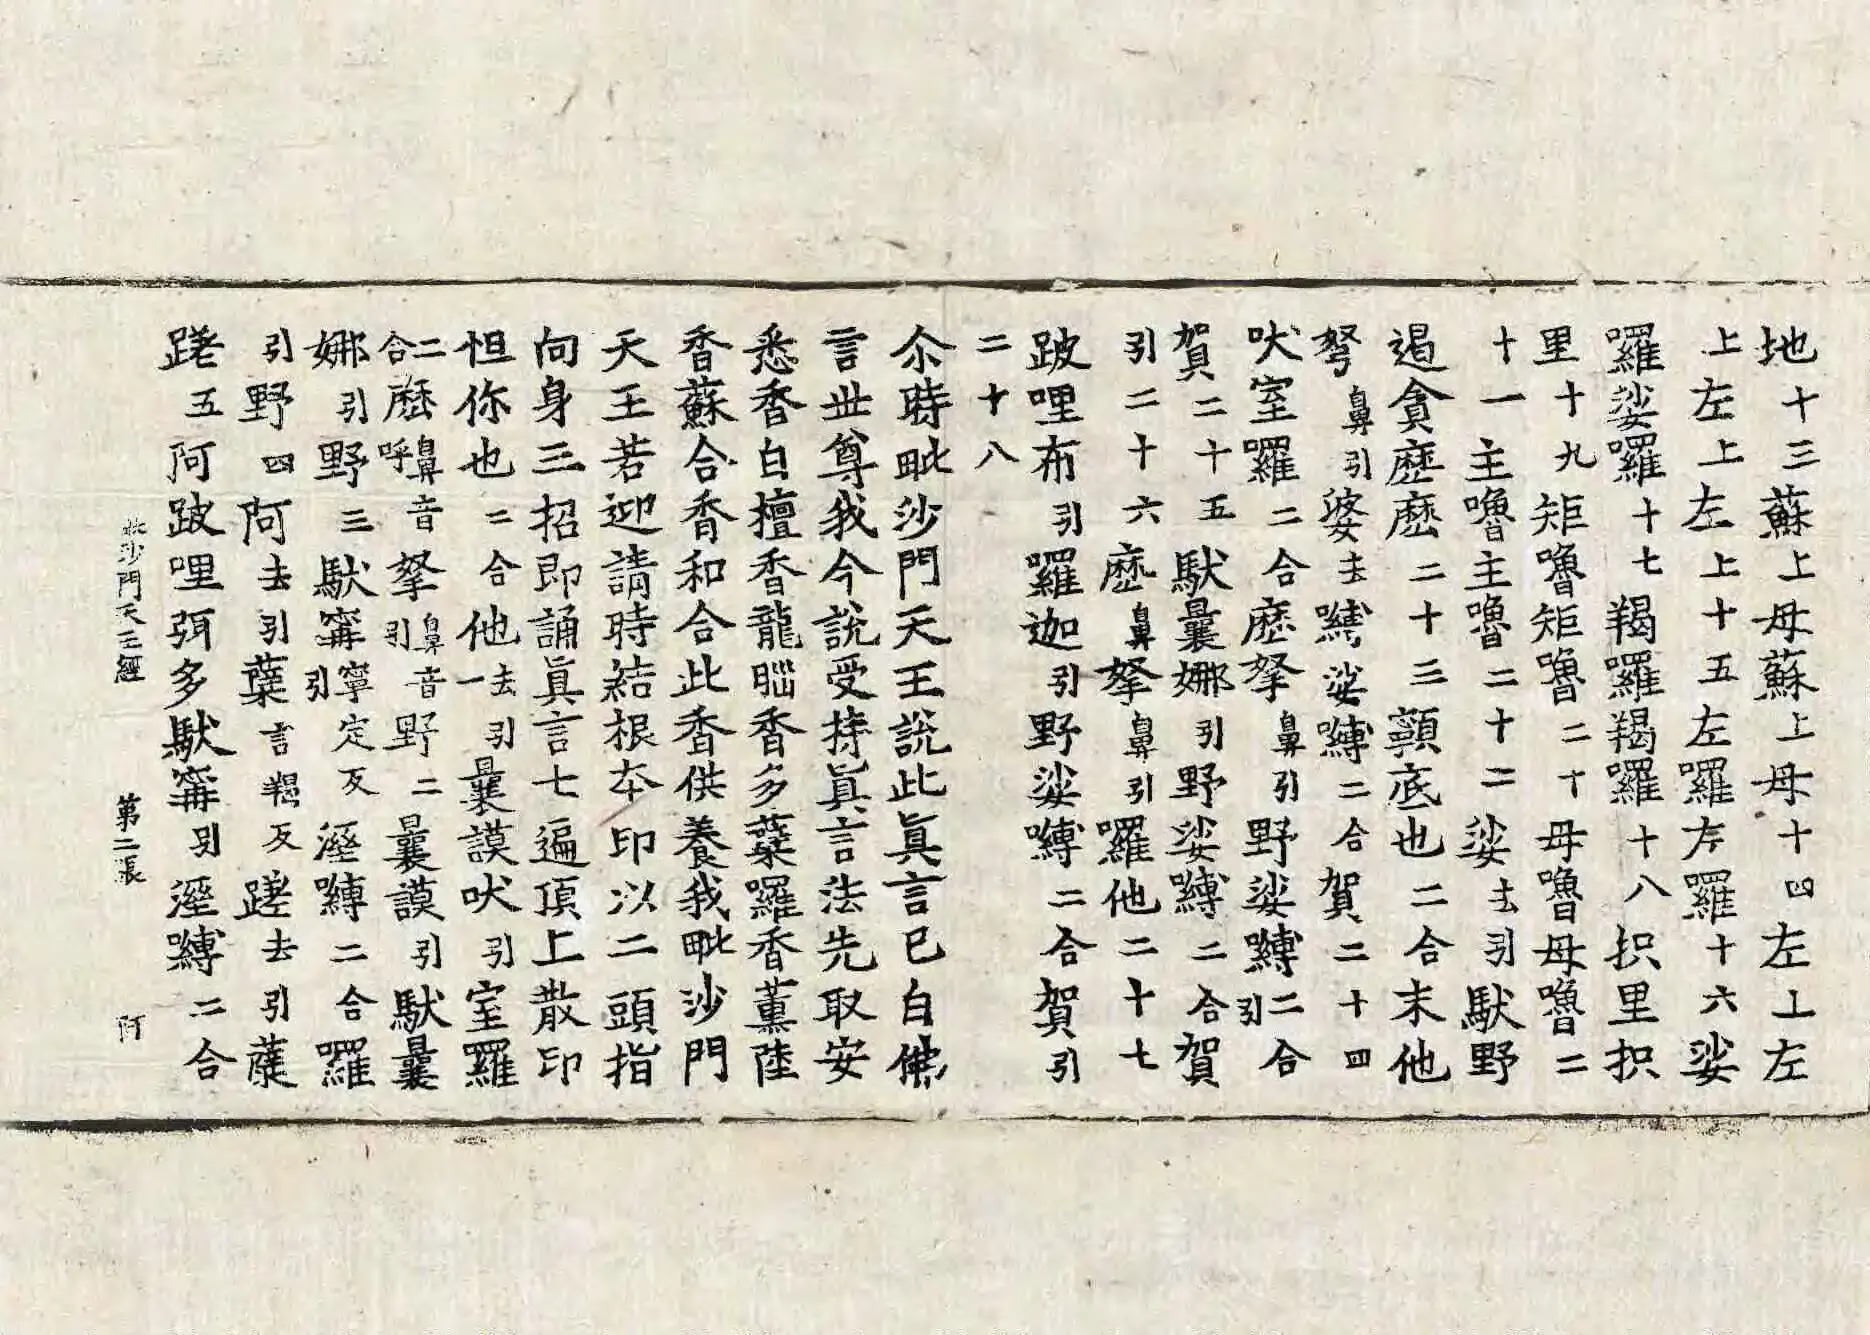 地十三蘇上母蘇上母十四左上左
上左上左上十五左囉左囉十六娑
囉娑囉十七羯囉羯囉十八抧里抧
里十九矩嚕矩嚕二十母嚕母嚕二
十一主嚕主嚕二十二娑去引馱野
遏貪麽麽二十三顙底也二合末他
拏鼻引婆去嚩娑嚩二合賀二十四
吠室囉二合麽拏鼻引野娑嚩二合引
賀二十五馱曩娜引野娑嚩二合賀
引二十六麽鼻拏鼻引囉他二十七
跛哩布引囉迦引野娑嚩二合賀引
二十八
尒時毗沙門天王說此眞言已白佛
言世尊我今說受持眞言法先取安
悉香白檀香龍腦香多蘖囉香薰陸
香蘇合香和合此香供養我毗沙門
天王若迎請時結根本印以二頭指
向身三招即誦眞言七遍頂上散印
怛你也二合他去一引曩謨吠引室羅
二合麽鼻音呼拏鼻音引野二曩謨引馱曩
娜引野三馱寗寧定反引溼嚩二合囉
引野四阿去引蘖言羯反蹉去引蘖
蹉五阿跛哩弭多馱寗引溼嚩二合
毗沙門天王經 第二張 阿